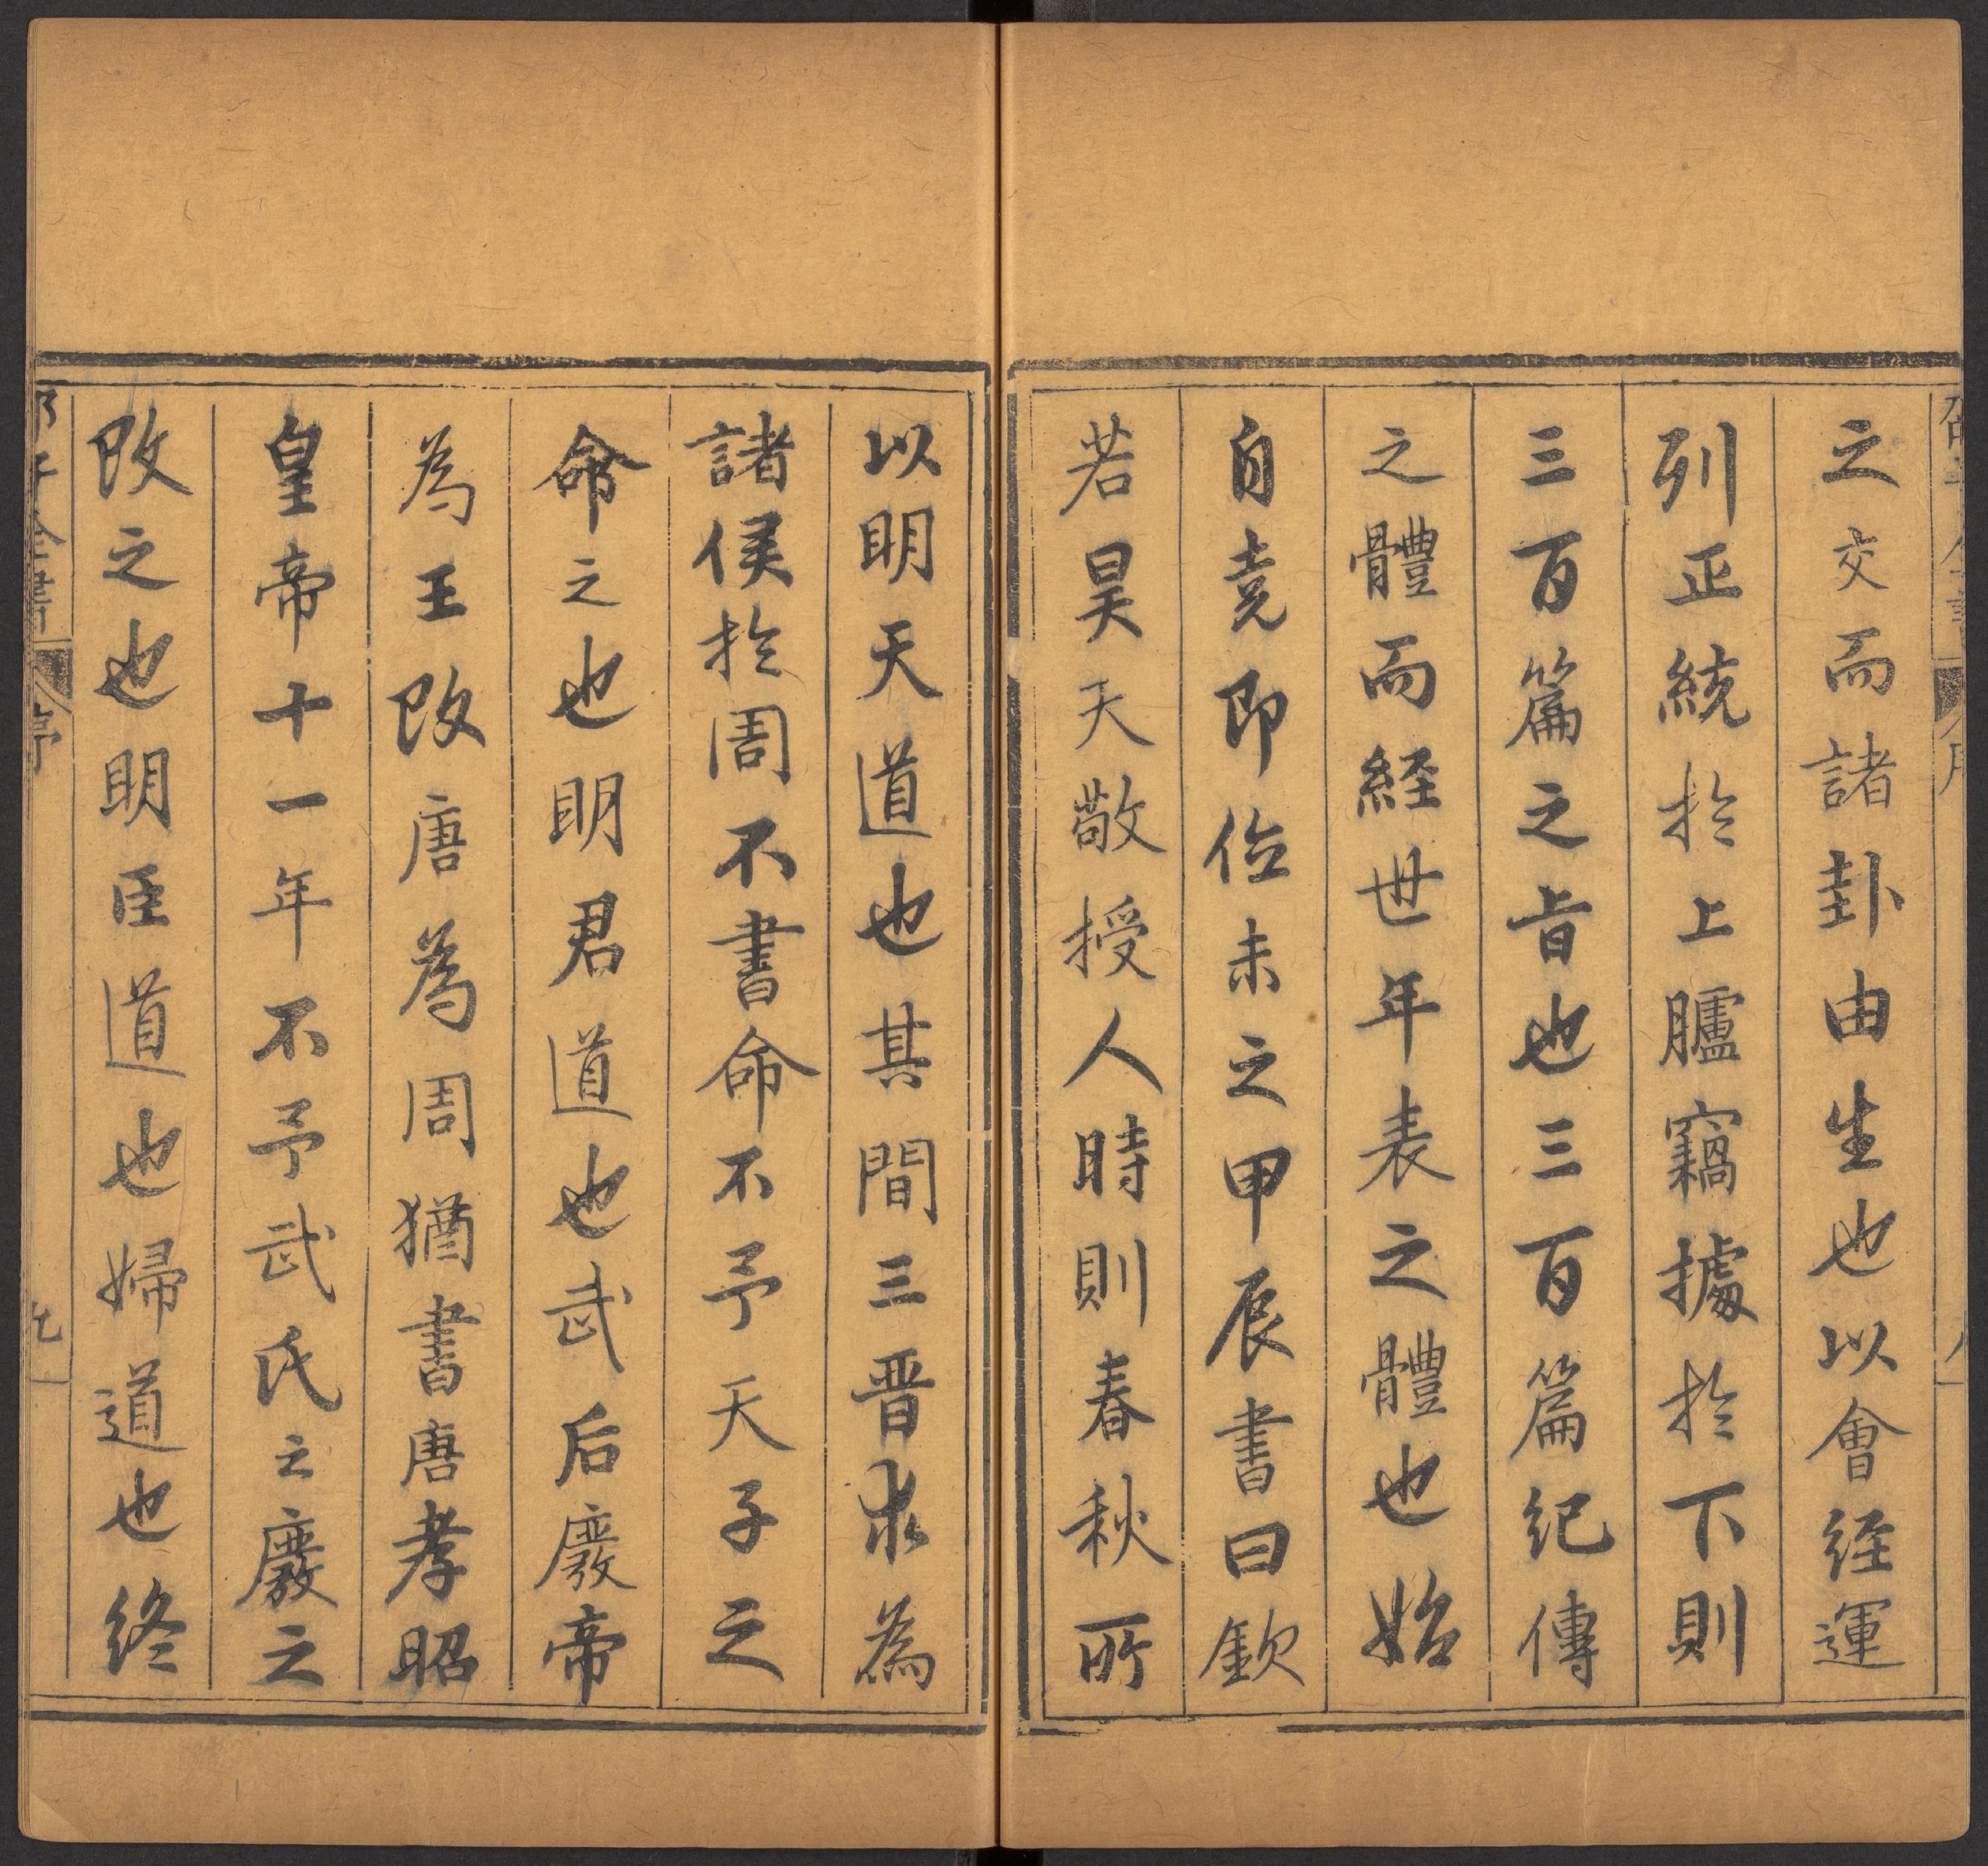 之交而諸卦由生也以會經運
列正統於上臚竊據於下則
三百篇之旨也三百篇紀傳
之體而経世年表之體也始
自堯即位未之甲辰書曰欽
若昊天敬授人時則春秋所
以明天道也其間三晋求為
諸侯於周不書命不予天子之
命之也明君道也武后廢帝
為王改唐為周猶書唐孝昭
皇帝十一年不予武氏之廢之
改之也明臣道也婦道也終